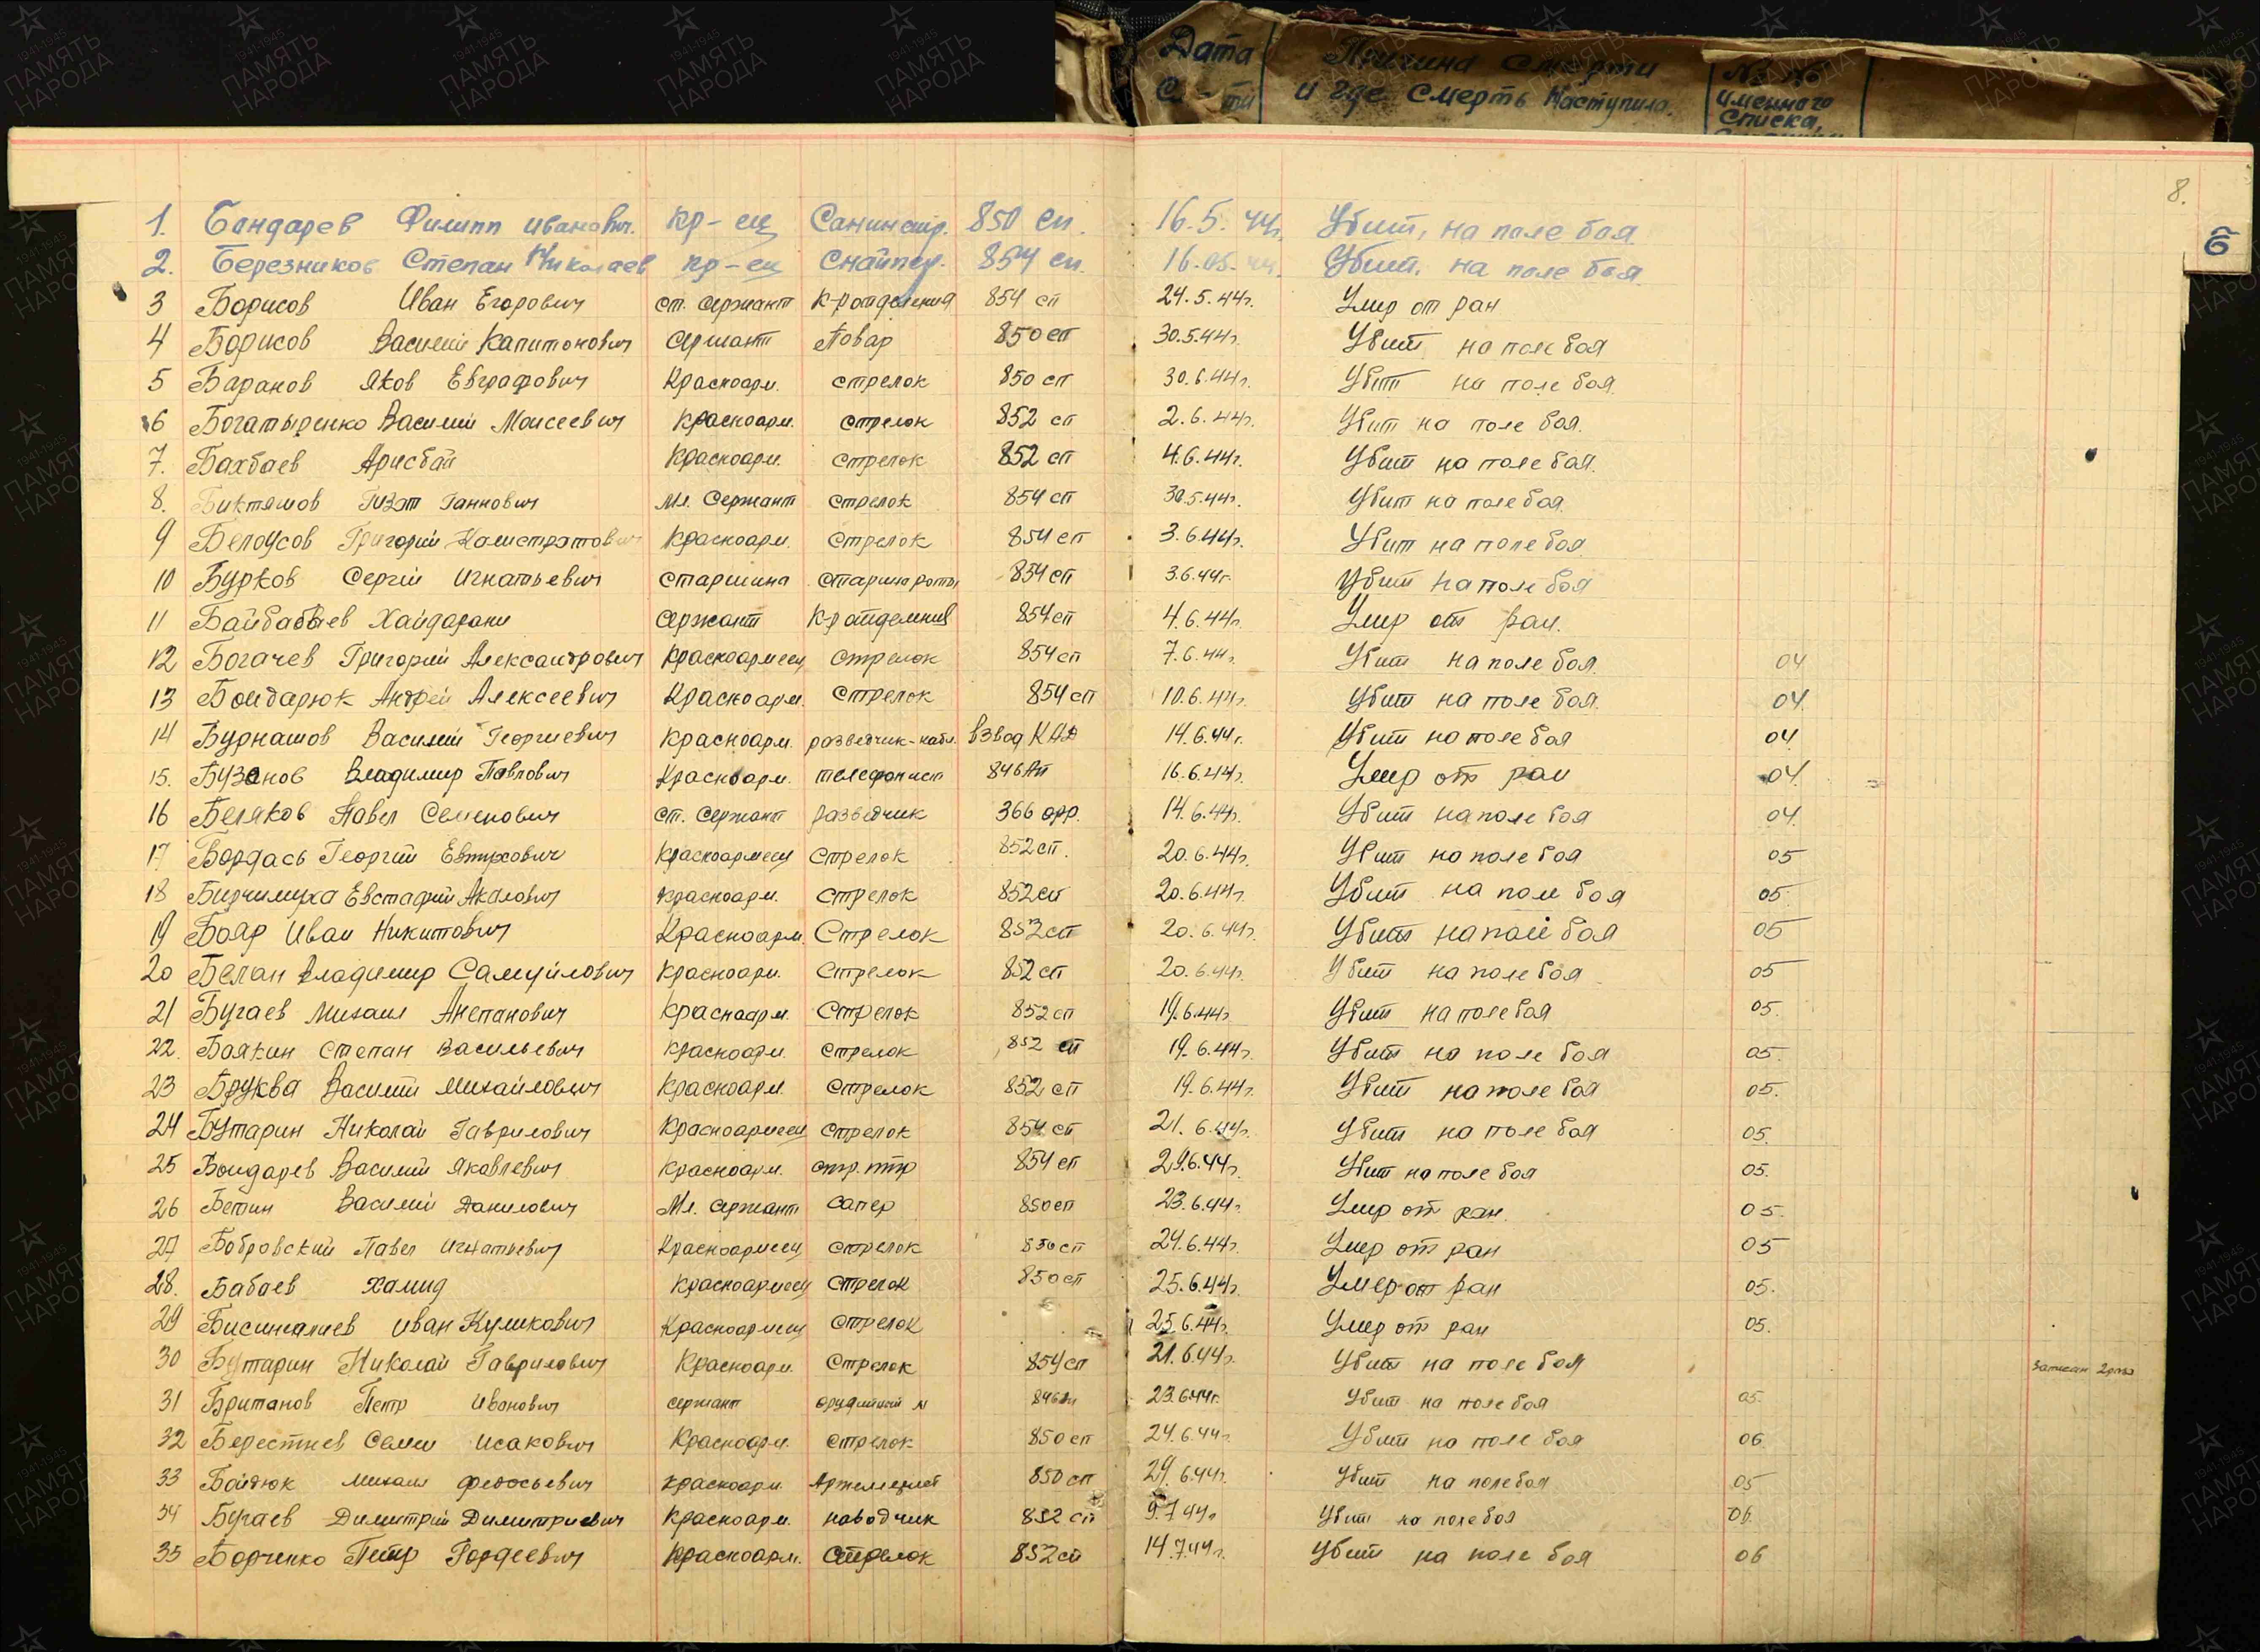 Дата Причина Смерти № №
С - ти и где Смерть Наступила. именного
Списка,
8.
Б
1. Бандарев Филипп иванович. кр-ец Санинстр. 850 сп. 16.5.44г. Убит, на поле боя
2. Березников Степан Николаев кр-ец Снайпер. 854 сп. 16.05.44. Убит, на поле боя.
3 Борисов Иван Егорович ст. сержант к-р отделения 854 сп 24.5.44г. Умер от ран
4 Борисов Василий Капитонович сержант Повар 850 сп 30.5.44г. Убит на поле боя
5 Баранов Яков Евграфович Красноарм. стрелок 850 сп 30.6.44г. Убит на поле боя.
6 Богатыренко Василий Моисеевич Красноарм. стрелок 852 сп 2.6.44г. Убит на поле боя.
7. Бахбаев Арисбай Красноарм. стрелок 852 сп 4.6.44г. Убит на поле боя.
8. Биктяшов Гизэт Ганнович Мл. Сержант стрелок 854 сп 30.5.44г. Убит на поле боя.
9 Белоусов Григорий Калистратович Красноарм. стрелок 854 сп 3.6.44г. Убит на поле боя.
10 Бурков Сергей Игнатьевич старшина старшина роты 854 сп 3.6.44г. Убит на поле боя
11 Байбабаев Хайдарани сержант К-р отделения 854 сп 4.6.44г. Умер от ран.
12 Богачев Григорий Александрович Красноармеец стрелок 854 сп 7.6.44г. Убит на поле боя. 04
13 Бондарюк Андрей Алексеевич Красноарм. стрелок 854 сп 10.6.44г. Убит на поле боя. 04.
14 Бурнашов Василий Георгиевич Красноарм. разведчик-набл. взвод КАД 14.6.44г. Убит на поле боя 04
15. Бузанов Владимир Павлович Красноарм. телефонист 846 Ап 16.6.44г. Умер от ран 04.
16 Беляков Павел Семенович ст. сержант разведчик 366 орр. 14.6.44г. Убит на поле боя 04.
17 Бордась Георгий Евтухович Красноармеец стрелок 852 сп. 20.6.44г. Убит на поле боя 05
18 Бирчимуха Евстафий Акалович Красноарм. стрелок 852 сп 20.6.44г. Убит на поле боя 05
19 Бояр Иван Никитович Красноарм. Стрелок 852 сп 20.6.44г. Убит на поле боя 05
20 Белан Владимир Самуйлович Красноарм. Стрелок 852 сп 20.6.44г. Убит на поле боя 05
21 Бугаев Михаил Анепанович Красноарм. Стрелок 852 сп 19.6.44г. Убит на поле боя 05.
22. Боякин степан Васильевич Красноарм. стрелок 852 сп 19.6.44г. Убит на поле боя 05.
23 Бруква Василий Михайлович Красноарм. стрелок 852 сп 19.6.44г. Убит на поле боя 05.
24 Бутарин Николай Гаврилович Красноармеец стрелок 854 сп 21.6.44г. Убит на поле боя 05.
25 Бондарев Василий Яковлевич Красноарм. стр. птр 854 сп 21.6.44г. Убит на поле боя 05.
26 Бетин Василий Данилович Мл. сержант сапер 850 сп 23.6.44г. Умер от ран. 05.
27 Бобровский Павел Игнатьевич Красноармеец стрелок 850 сп 24.6.44г. Умер от ран 05
28. Бабаев Хамид Красноармеец стрелок 850 сп 25.6.44г. Умер от ран 05.
29 Бисиналиев Иван Куликович Красноармеец стрелок 25.6.44г. Умер от ран 05.
30 Бутарин Николай Гаврилович Красноарм. Стрелок 854 сп 21.6.44г. Убит на поле боя Записан 2 раза
31 Британов Петр Иванович сержант орудийный м 846 ап 23.6.44г. Убит на поле боя 05.
32 Берестнев Семен Исакович Красноарм. стрелок 850 сп 24.6.44г. Убит на поле боя 06
33 Байдюк Михаил Федосьевич Красноарм. 850 сп 24.6.44г. Убит на поле боя 05
34 Бугаев Димитрий Димитриевич Красноарм. наводчик 852 сп 9.7.44г. Убит на поле боя 06.
35 Борченко Петр Гордеевич Красноарм. Стрелок 852 сп 14.7.44г. Убит на поле боя 06